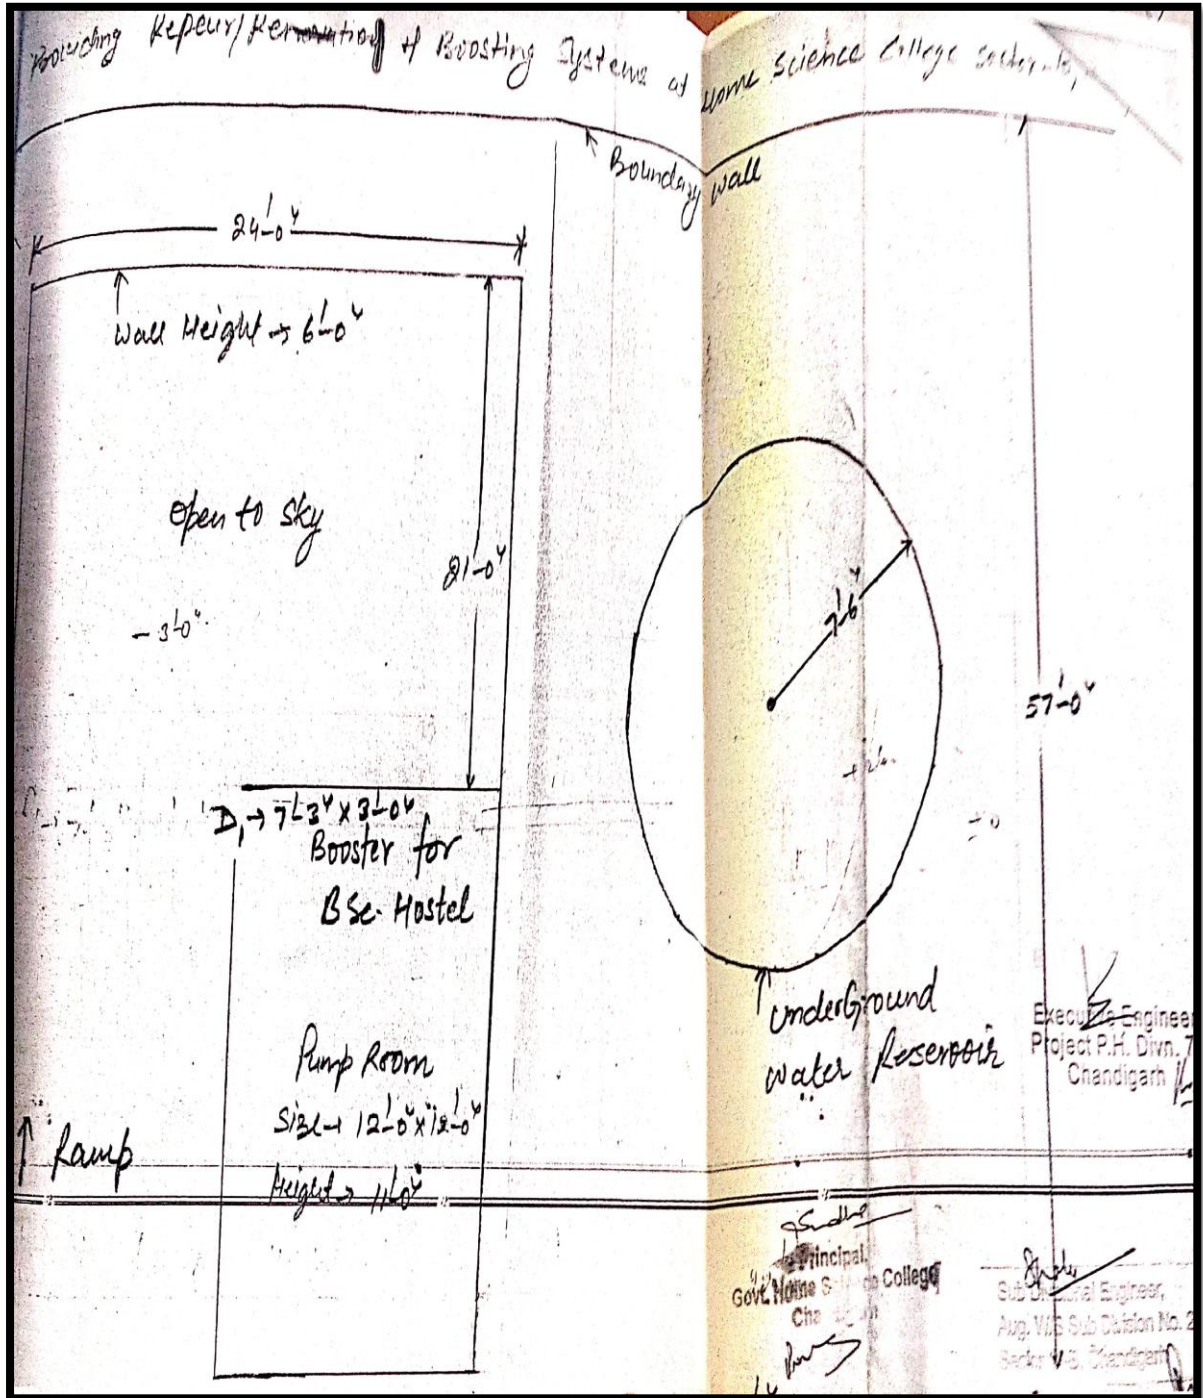 Providing Repair/Renovation of Boosting Systems at Home Science College Sector-10,
Boundary wall
24'-0"
Wall Height → 6'-0"
Open to Sky
21'-0"
- 3'-0"
7'-6"
57'-0"
D₁ → 7'-3" x 3'-0"
Booster for
BSc. Hostel
Underground
water Reservoir
Pump Room
Size → 12'-0" x 12'-0"
Height → 11'-0"
Ramp
Executive Engineer
Project P.H. Divn. 7
Chandigarh
Principal,
Govt. Home College
Sub Divisional Engineer,
Aug. W/S Sub Division No. 2
Chandigarh